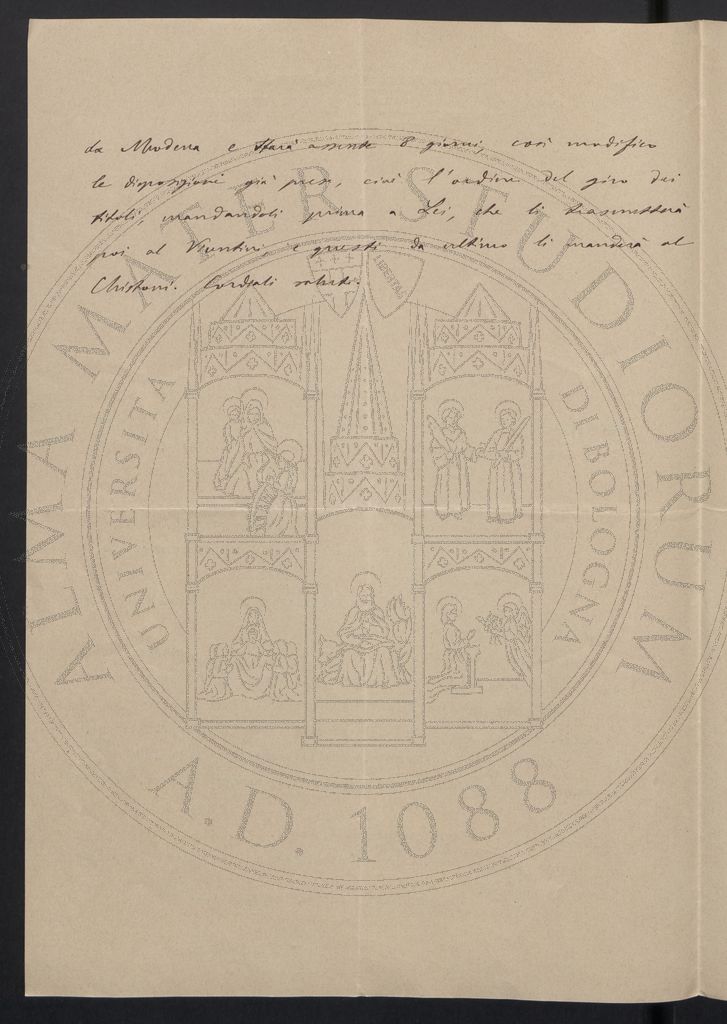 da Modena e starà assente 8 giorni, così modifico
le disposizioni già prese, cioè l'ordine del giro dei
titoli, mandandoli prima a Lei, che li trasmetterà
poi al Vicentini, e questi da ultimo li manderà al
Chistoni. Cordiali saluti.
ALMA MATER STUDIORUM
UNIVERSITÀ DI BOLOGNA
LIBERTAS
A.D. 1088